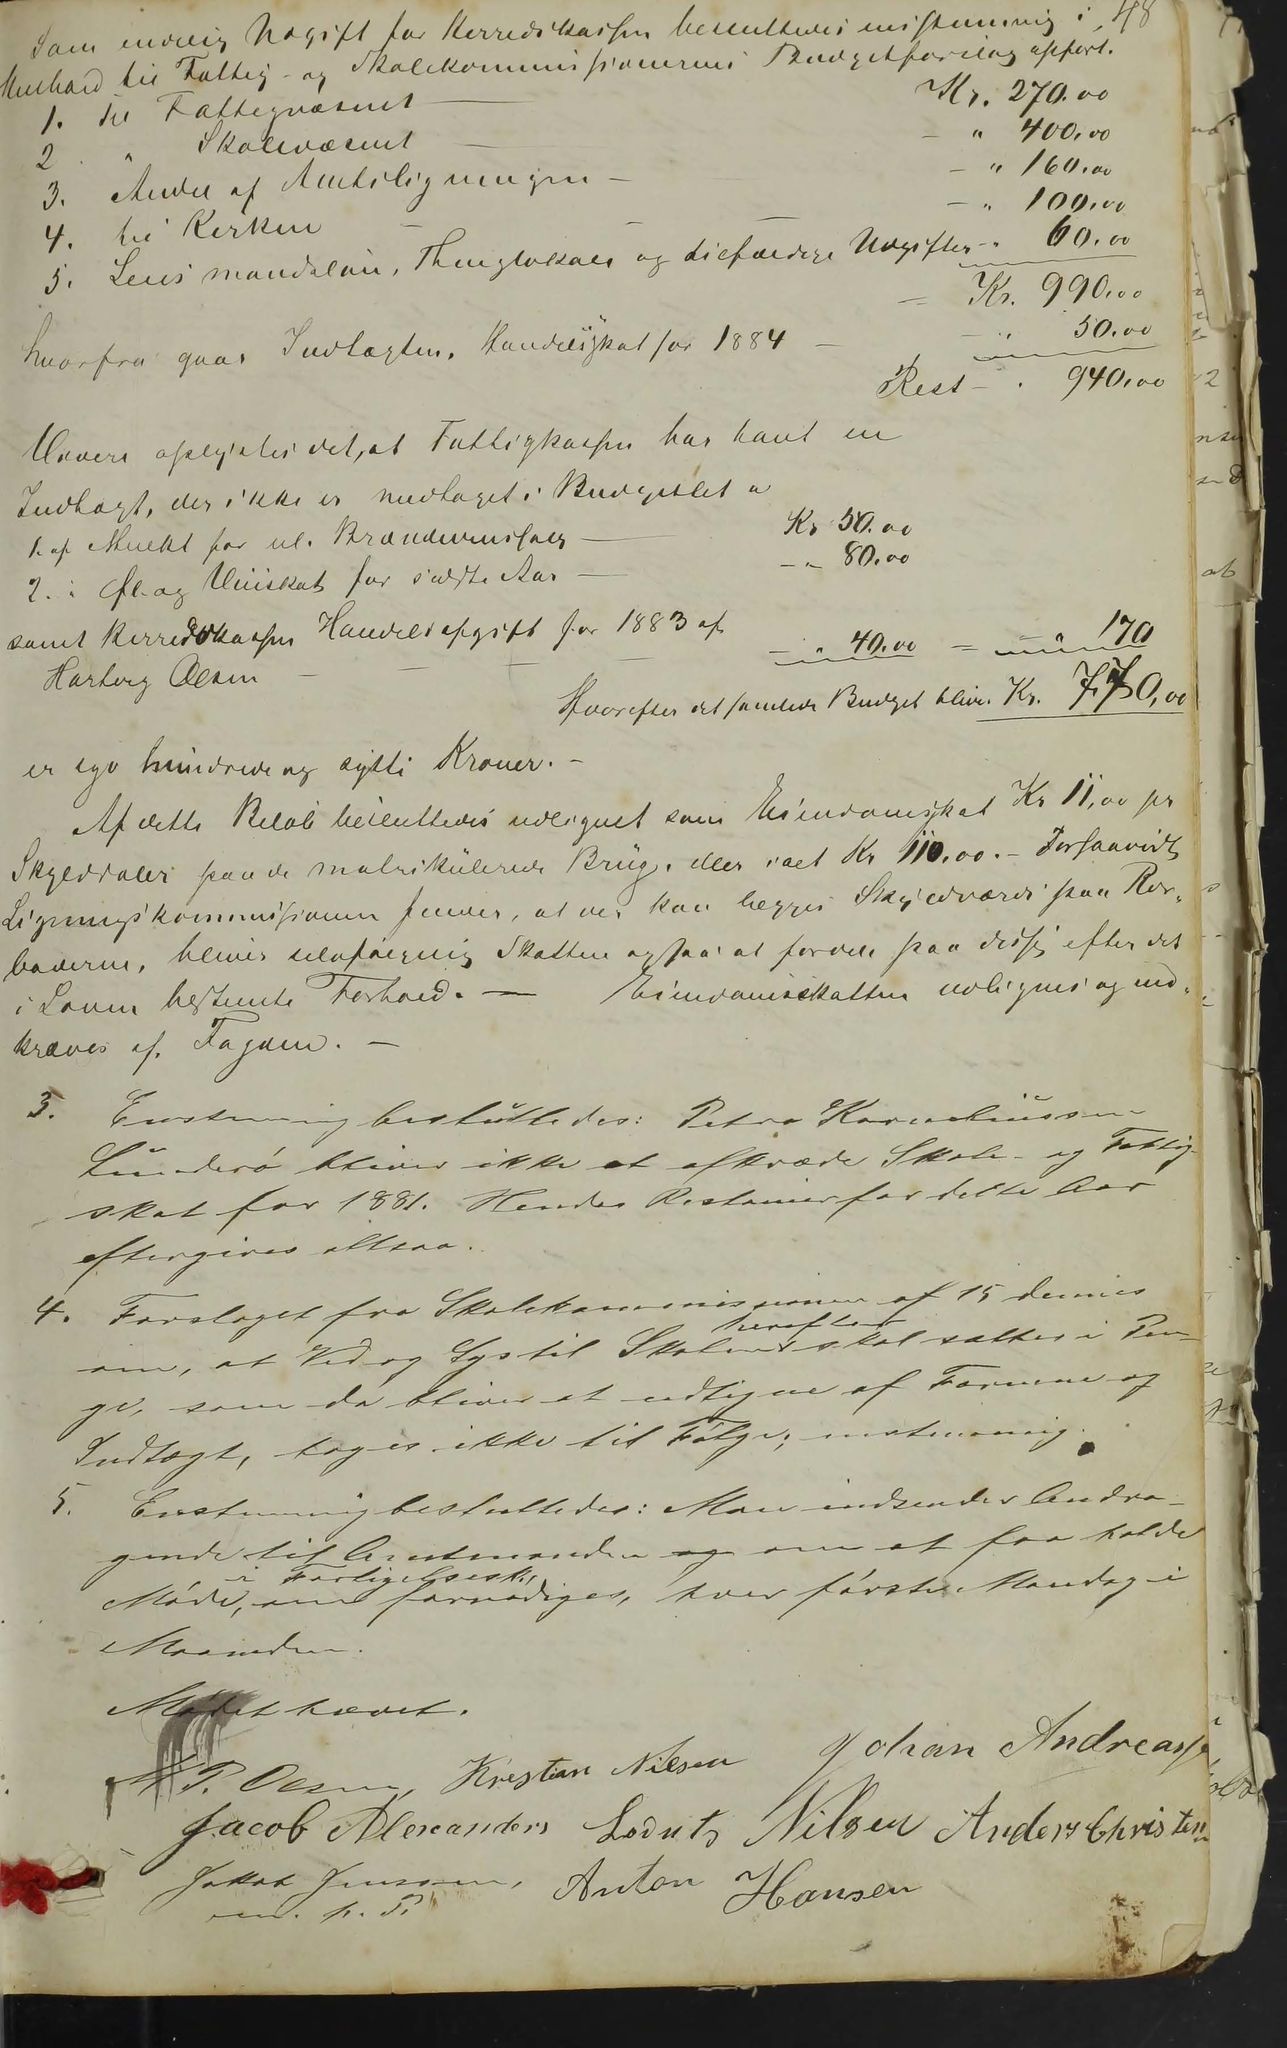 48
Som endelig Udgift for Herredskassen besluttedes enstemmig i
Henhold til Fattig- og Skolekommissionernes Budgetforslag opført.
1. til Fattigvæsenet — Kr. 270.00
2 " Skolevæsenet — - " 400.00
3. Andel af Amtsligningen — - " 160.00
4. til Kirken — - " 100.00
5. Lensmandsløn, Thinglokale og tilfældige Udgifter - " 60.00
— Kr. 990.00
hvorfra gaar Indtægten, Handelsskat for 1884 — - " 50.00
Rest - " 940.00
Videre oplystes det, at Fattigkassen har havt en
Indtægt, der ikke er medtaget i Budgettet a
1. af Mulkt for ul. Brændevinssalg — Kr 50.00
2. i Øl og Vinskat for sidste Aar — - " 80.00
samt Herredskassen Handelsafgift for 1883 af
Hartvig Olsen — - " 40.00 = 170
Hvorefter det samlede Budget bliver Kr. 770,00
er syv hundrede og sytti Kroner. -
Af dette Beløb besluttedes udlignet som Eiendomsskat Kr 11,00 pr
Skylddaler paa de matrikulerede Brug, eller ialt Kr 110.00. - Forsaavidt
Ligningskommissionen finder, at der kan lægges Skyldværdi paa Ror-
boderne, bliver selvfølgelig Skatten ogsaa at fordele paa disse efter det
i Loven bestemte Forhold. — Eiendomsskatten udlignes og ind-
kræves af Fogden. -
3. Enstemmig besluttedes: Petra Korneliussen
Sunderø bliver ikke at afkræve Skole- og Fattig-
skat for 1881. Hendes Restancer for dette Aar
eftergives altsaa.
4. Forslaget fra Skolekommissionen af 15 dennes
om, at Ved og Lys til Skolen herefter skal sættes i Pen-
ge, som da bliver at udligne af Formue og
Indtægt, toges ikke til Følge; enstemmig.
5. Enstemmig besluttedes: Man indsender Andra-
gende til Amtmanden og om at faa holde
Møde, i Forligelsesk. om fornødiges, hver første Mandag i
Maaneden.
Mødet hævet.
P. Olsen, Kristian Nilsen Johan Andreass
Jacob Alexanders Lorents Nilsen Anders Christen
Jakob Jenssen, Anton Hansen
m. p. P.